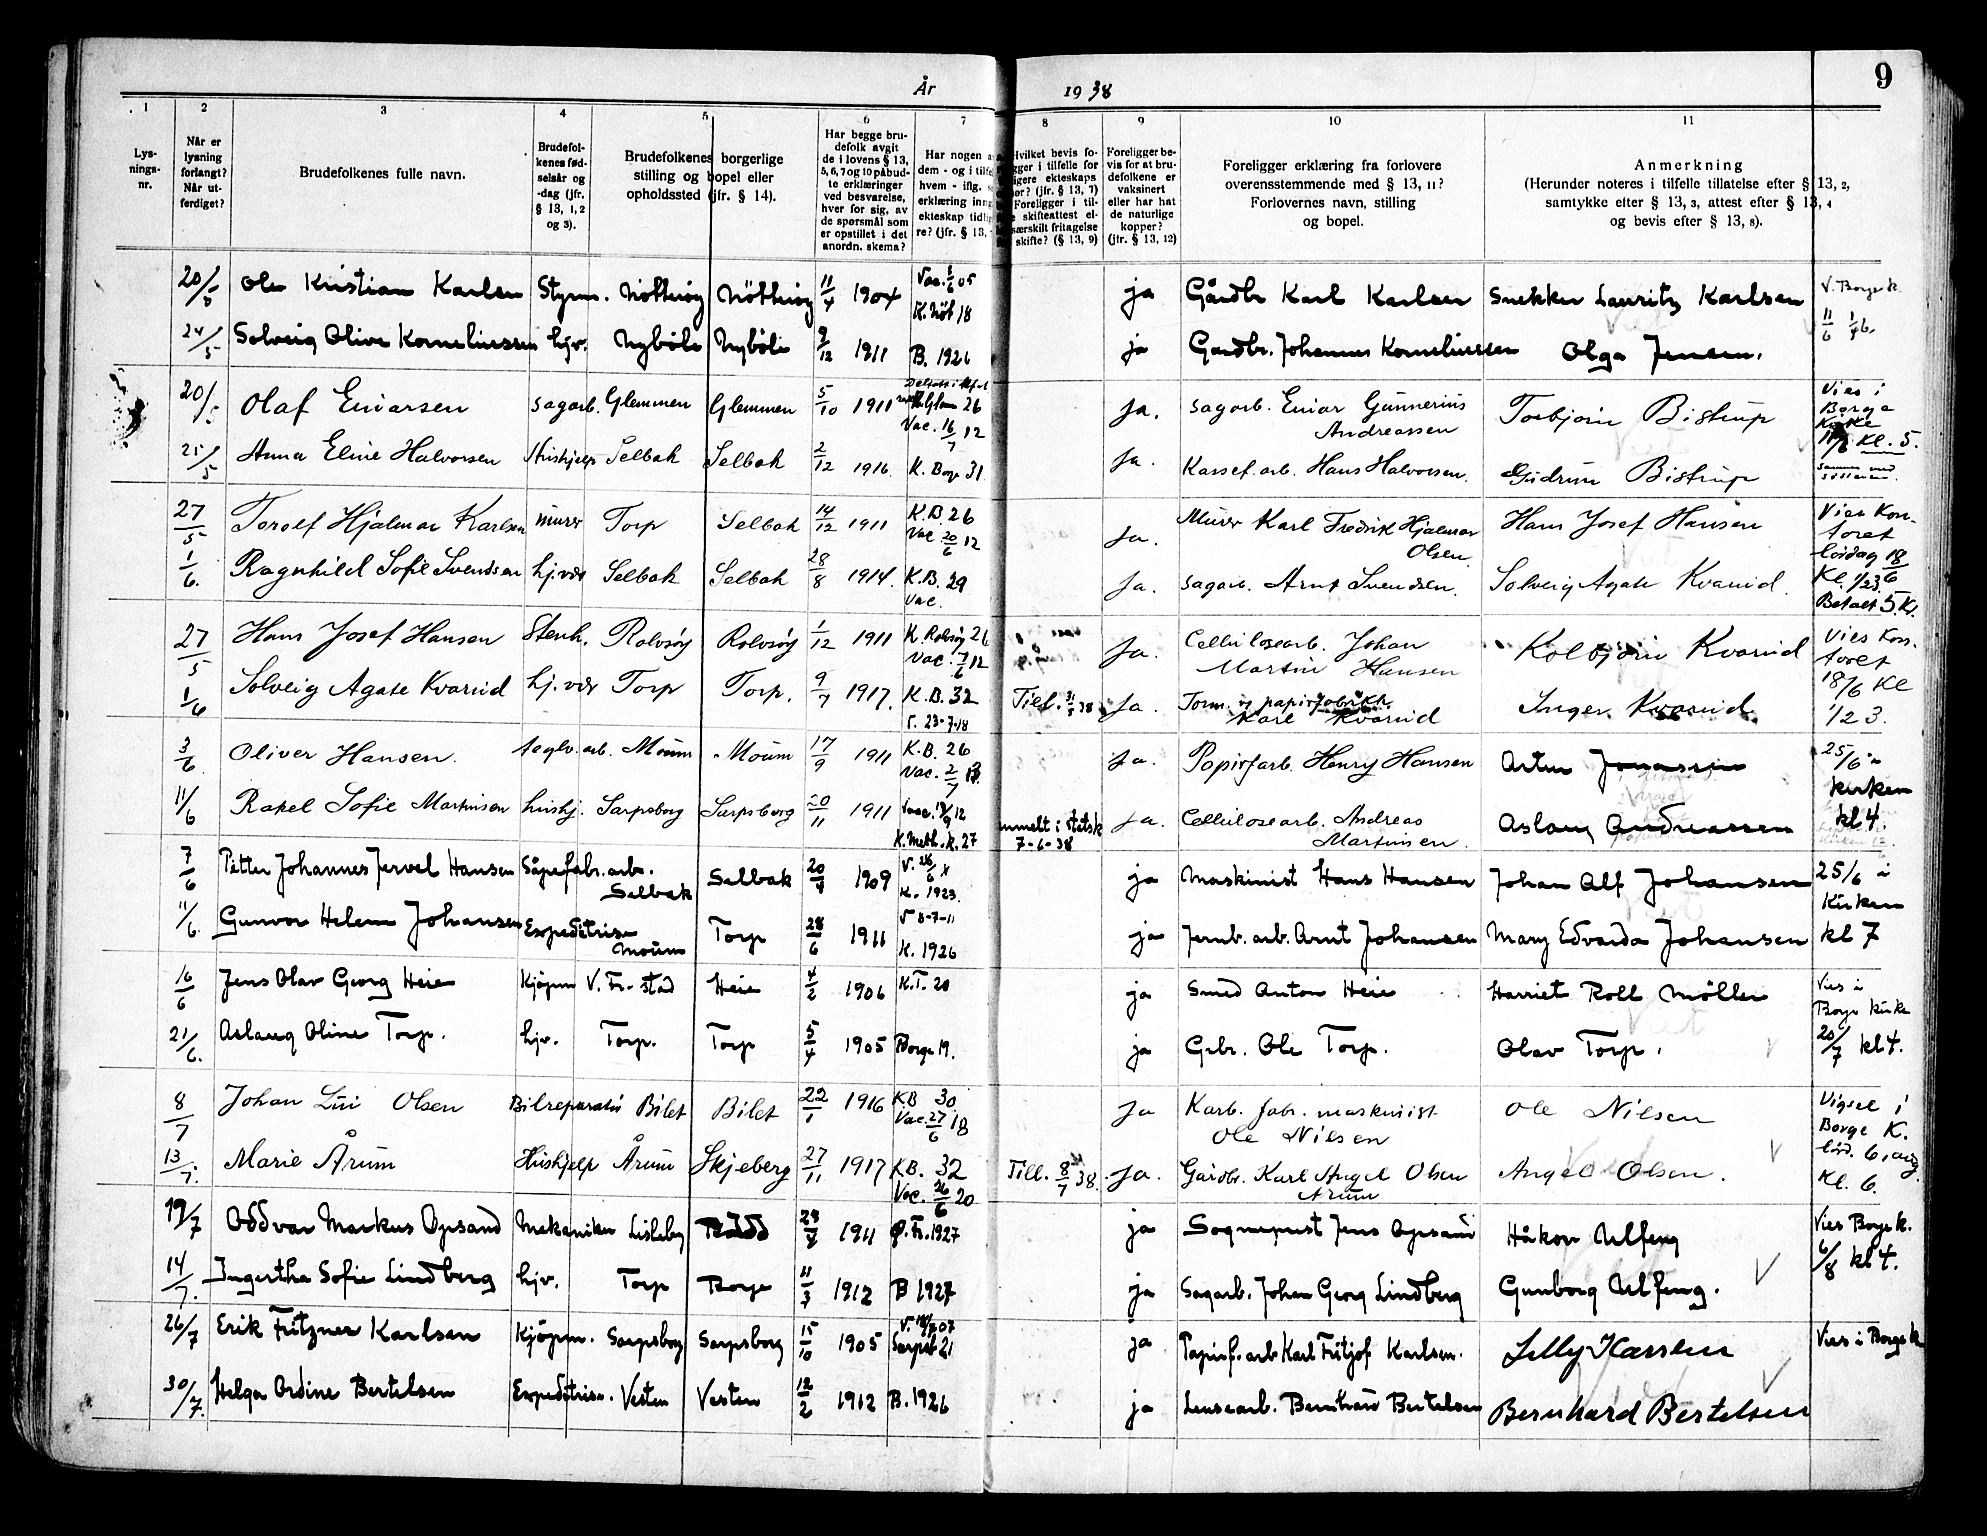 År 1938
9
1 2 3 4 5 6 7 8 9 10 11
Lys-
nings-
nr.
Når er
lysning
forlangt?
Når ut-
ferdiget?
Brudefolkenes fulle navn.
Brudefol-
kenes fød-
selsår og
-dag (jfr.
§ 13, 1, 2
og 3).
Brudefolkenes borgerlige
stilling og bopel eller
opholdssted (jfr. § 14).
Har begge bru-
defolk avgit
de i lovens § 13,
5, 6, 7 og 10 påbud-
te erklæringer
ved besvarelse,
hver for sig, av
de spørsmål som
er opstillet i det
anordn. skema?
Har nogen a
dem - og i tilfe
hvem - iflg.
erklæring inng
ekteskap tidlig
re? (jfr. § 13,
Hvilket bevis fo-
gger i tilfelle for
igere ekteskaps
or? (jfr. § 13, 7)
Foreligger i til-
e skifteattest el-
særskilt fritagelse
skifte? (§ 13, 9)
Foreligger be-
vis for at bru-
defolkene er
vaksinert
eller har hat
de naturlige
kopper?
(jfr. § 13, 12)
Foreligger erklæring fra forlovere
overensstemmende med § 13, 11?
Forlovernes navn, stilling
og bopel.
Anmerkning
(Herunder noteres i tilfelle tillatelse efter § 13, 2,
samtykke efter § 13, 3, attest efter § 13, 4
og bevis efter § 13, 8).
20/5 Ole Kristian Karlsen Styrm. Nötteröy Nötteröy 11/4 1904 Vac. 8/6 05 K. Nöt 18 ja Gårdbr Karl Karlsen Snekker Lauritz Karlsen V. Borge k.
24/5 Solveig Olive Korneliussen hjv. Nyböle Nyböle 9/12 1911 B. 1926 ja Gardbr. Johannes Korneliussen Olga Jensen. 11/6
20/5 Olaf Einarsen sagarb. Glemmen Glemmen 5/10 1911 K. Glem 26 Vac. 16/7 12 Ja. sagarb. Einar Gunnerius Andreassen Torbjörn Bistrup Vies i Borge Kirke 11/6 Kl. 5.
25/5 Anna Eline Halvorsen Hushjelp Selbak Selbak 2/12 1916. K. Borge 31 Ja. Kassef.arb. Hans Halvorsen. Gudrun Bistrup
27/5 Torolf Hjalmar Karlsen murer Torp Selbak 14/12 1911 K.B. 26 Vac 20/6 12 Ja. Murer Karl Fredrik Hjalmar Olsen Hans Josef Hansen Vies Kontoret Lördag 18/6 Kl. 1/2 3. Betalt 5 Kr.
1/6. Ragnhild Sofie Svendsen hj.vdr Selbak Selbak 28/8 1914. K.B. 29 Vac. Ja. sagarb. Arnt Svendsen. Solveig Agate Kvarud.
27/5 Hans Josef Hansen Stenh. Rolvsöy Rolvsöy 1/12 1911 K. Rolvsöy 26 Vac. 7/6 12 Ja. Cellulosearb. Johan Martin Hansen Kolbjörn Kvarud Vies Kontoret 18/6 Kl 1/2 3.
1/6 Solveig Agate Kvarud hj.vdr Torp Torp. 9/7 1917. K.B. 32 v. 23-7-18 Till. 31/5 38 Ja. Form. v papirfabrikk. Karl Kvarud Inger Kvarud
3/6 Oliver Hansen. teglv.arb. Moum Moum 17/9 1911 K.B. 26 Vac. 2/7 13 Ja. Papirfarb. Henry Hansen Artur Jonassen 25/6 i kirken kl 4.
11/6 Rakel Sofie Martinsen hushj. Sarpsborg Sarpsborg 20/11 1911 K. Meth. k. 27 nmelt i statsk 7-6-38 Ja. Cellulosearb. Andreas Martinsen. Aslaug Andreassen
7/6 Petter Johannes Jervel Hansen Såpefabr. arb. Selbak Selbak 20/4 1909 K. 1923. ja Maskinist Hans Hansen Johan Alf Johansen 25/6 i Kirken kl 7
11/6. Gunvor Helene Johansen Expeditrise Moum Torp 28/6 1911 v 8-7-11 K. 1926 ja Jernb. arb. Arnt Johansen Mary Edvarda Johansen
16/6 Jens Olav Georg Heie Kjöpm V. Fr. stad Heie 4/2 1906 K.T. 20 ja Smed Anton Heie Harriet Roll Möller Vies i Borge kirke 20/7 kl 4.
21/6. Aslaug Oline Torp. hjv. Torp. Torp 5/4 1905 Borge 19. ja Grbr. Ole Torp. Olav Torp.
8/7 Johan Olsen Bilreparatör Bilet Bilet 22/1 1916 KB 30 Vac. 27/6 18 Ja Karb. fabr. maskinist Ole Nilsen Ole Nilsen Vigsel i Borge K. lörd. 6. aug Kl. 6.
13/7. Marie Årum Hushjelp Årum Skjeberg 27/11 1917 KB. 32 Vac. 26/6 20 Till. 8/7 38. Ja. Gårdbr. Karl Angel Olsen Årum Angel Olsen.
19/7 Oddvar Markus Opsand Mekaniker Lisleby 1911 Fr. 1927 ja Sogneprest Jens Opsand Håkon Ulfeng Vies Borge k. 6/8 kl 4.
14/7. Ingertha Sofie Lindberg hjv. Torp Borge 11/3 1912 B 1927 ja Sagarb. Johan Georg Lindberg Gunborg Ulfeng.
26/7 Erik Fritzner Karlsen Kjöpm. Sarpsborg Sarpsborg 15/10 1905 Sarpsb 21 ja Papirf. arb Karl Fritjof Karlsen. Lilly Karlsen Vies i Borge k
30/7. Helga Ordine Bertelsen Expeditrise. Vesten Vesten 12/2 1912 B. 1926 ja Lensearb. Bernhard Bertelsen Bernhard Bertelsen